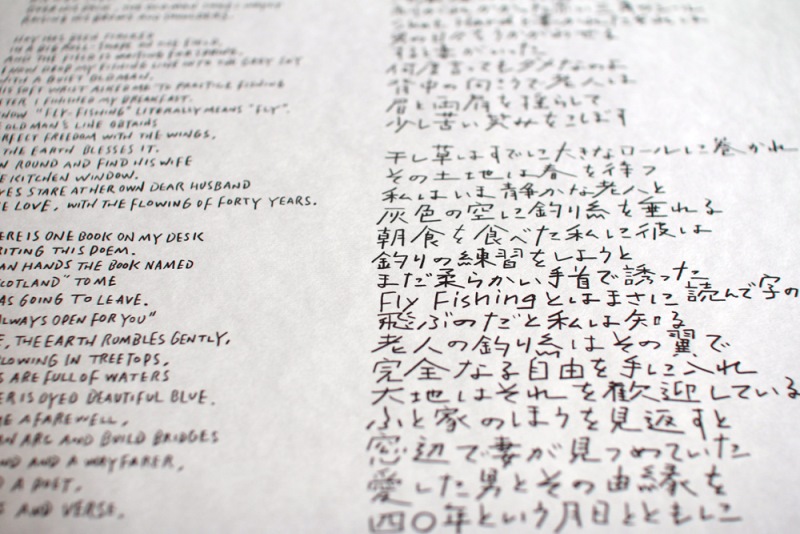 HAY HAS BEEN
IN A BIG ROLL-SHAPE ON THE FIELD,
AND THE FIELD IS WAITING FOR SPRING.
I NOW DROP MY FISHING LINE INTO THE GREY SKY
WITH A QUIET OLD MAN.
HIS SOFT WRIST ASKED ME TO PRACTICE FISHING
AFTER I FINISHED MY BREAKFAST.
KNOW "FLY-FISHING" LITERALLY MEANS "FLY".
OLD MAN'S LINE OBTAINS
RFECT FREEDOM WITH THE WINGS,
THE EARTH BLESSES IT.
N ROUND AND FIND HIS WIFE
E KITCHEN WINDOW.
YES STARE AT HER OWN DEAR HUSBAND
E LOVE, WITH THE FLOWING OF FORTY YEARS.
ERE IS ONE BOOK ON MY DESK
RITING THIS POEM.
AN HANDS THE BOOK NAMED
SCOTLAND" TO ME
AS GOING TO LEAVE.
ALWAYS OPEN FOR YOU"
E, THE EARTH RUMBLES GENTLY,
LOWING IN TREETOPS,
S ARE FULL OF WATERS
ER IS DYED BEAUTIFUL BLUE.
ME A FAREWELL,
AN ARC AND BUILD BRIDGES
ND AND A WAYFARER,
D A POET,
E AND VERSE.
する妻がいった
何度言ってもダメなのよ
背中の向こうで老人は
眉と両肩を揺らして
少し苦い笑みをこぼす
干し草はすでに大きなロールに巻かれ
その土地は春を待つ
私はいま静かな老人と
灰色の空に釣り糸を垂れる
朝食を食べた私に彼は
釣りの練習をしようと
まだ柔らかい手首で誘った
Fly Fishingとはまさに読んで字の
飛ぶのだと私は知る
老人の釣り糸はその翼で
完全なる自由を手に入れ
大地はそれを歓迎している
ふと家のほうを見返すと
窓辺で妻が見つめていた
愛した男とその由縁を
四〇年という月日とともに